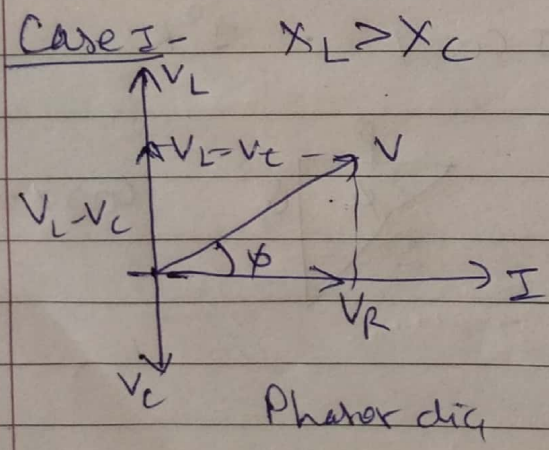 Case I- XL > XC
VL
VL-Vc V
VL-VC
φ
I
VR
VC
Phasor dia